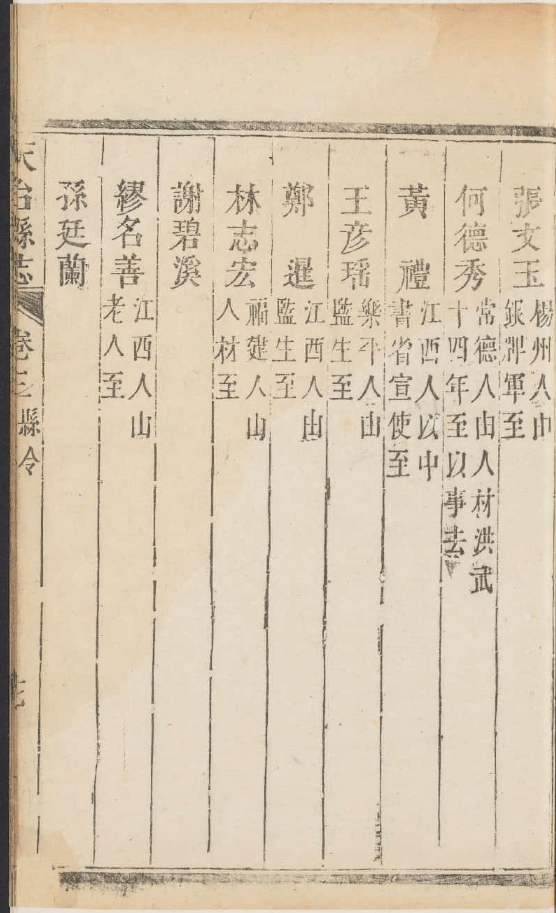 張文玉
楊州人由
銀牌軍至
何德秀
常德人由人材洪武
十四年至以事去
黃禮
江西人以中
書省宣使至
王彦瑶
樂平人由
監生至
鄭暹
江西人由
監生至
林志宏
福建人由
人材至
謝碧溪
繆名善
江西人由
老人至
孫廷蘭
天台縣志 卷之 縣令